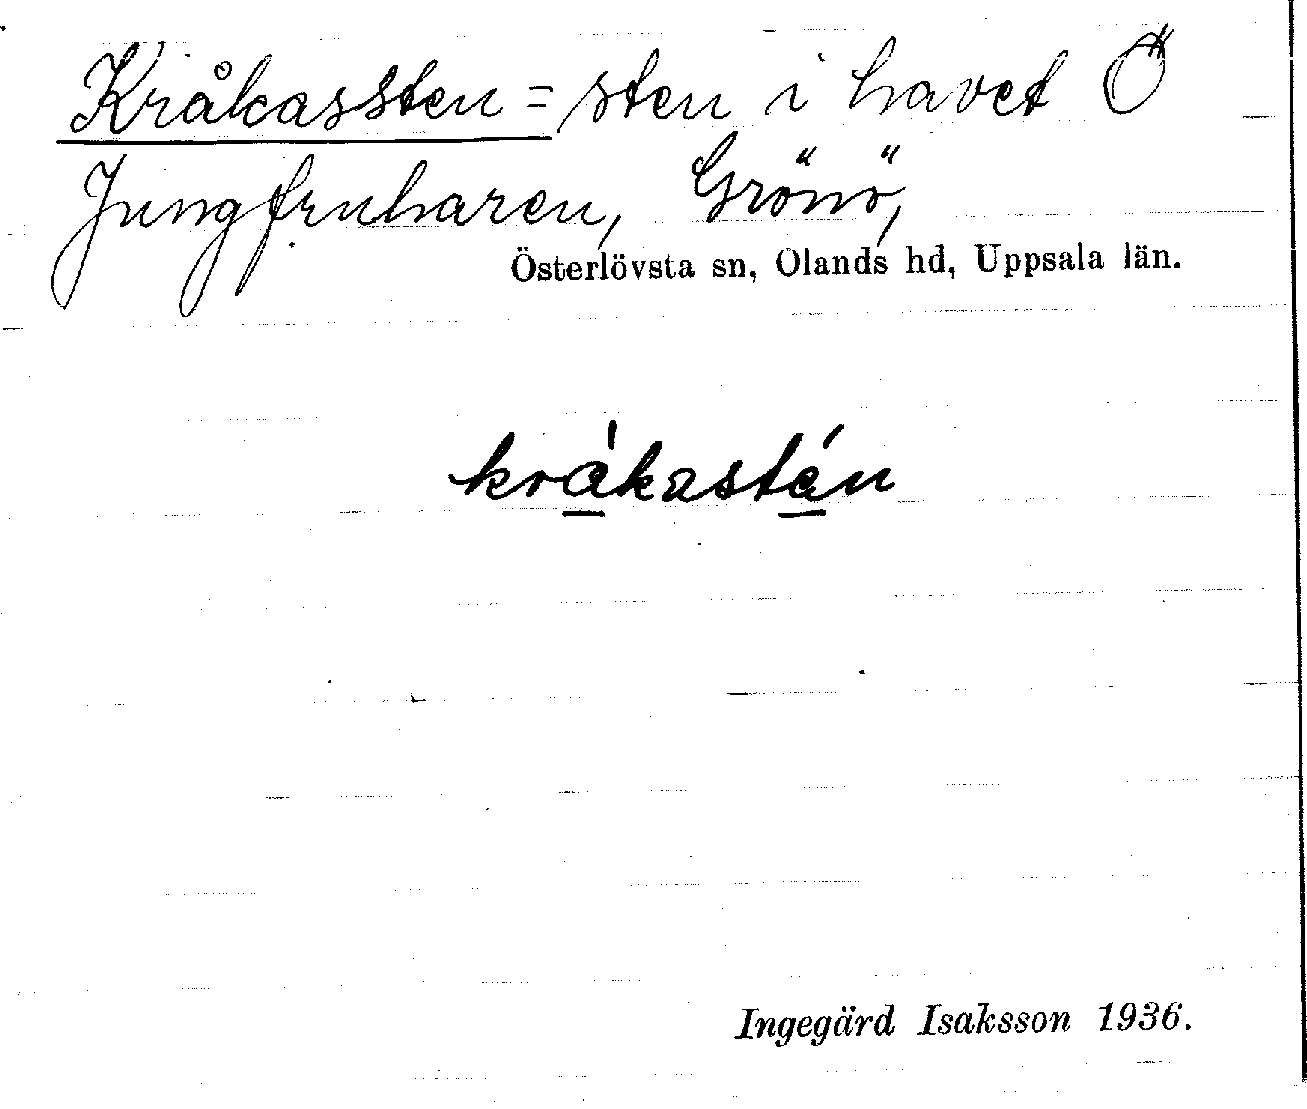 Kråkassten = sten i havet Ö
Jungfruharen, Grönö,
Österlövsta sn, Olands hd, Uppsala län.
krákastán
Ingegärd Isaksson 1936.